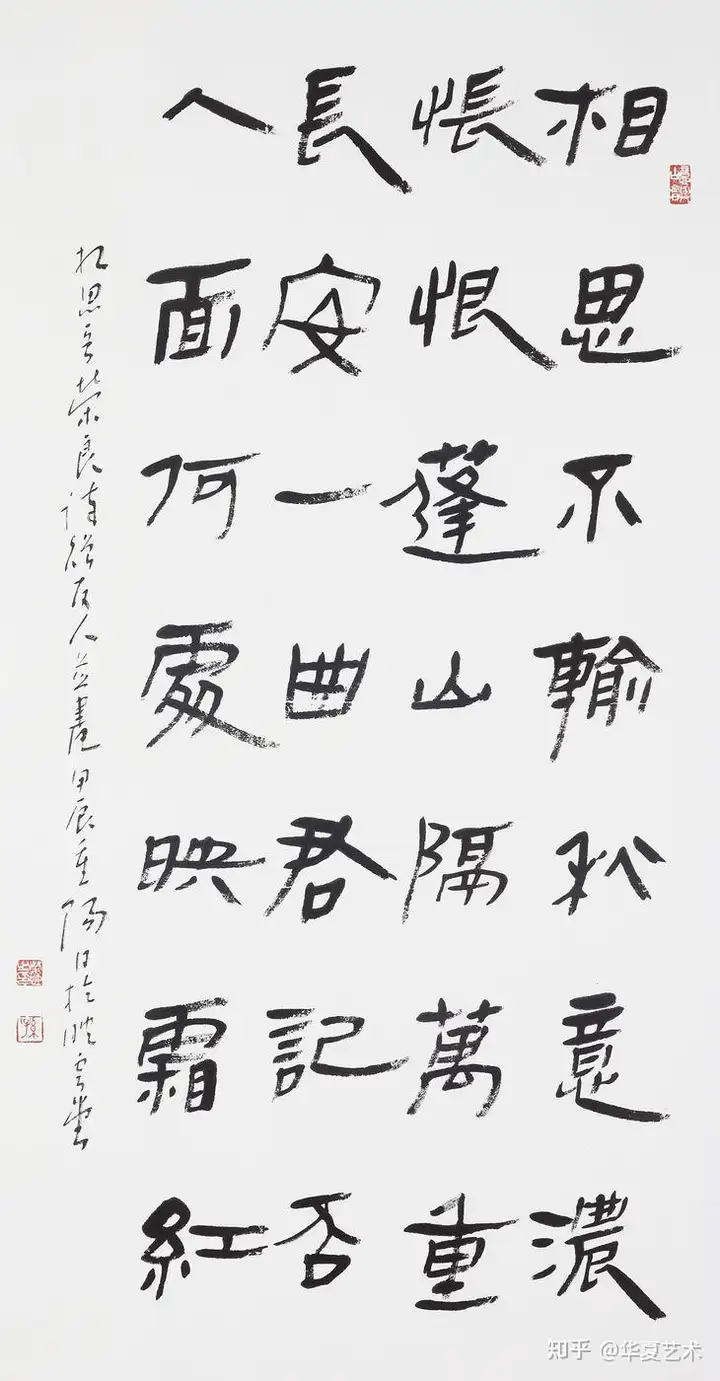 相思不輸秋意濃
悵恨蓬山隔萬重
長安一曲君記否
人面何處映霜紅
相思 榮良詩 友人並書 甲辰重陽日於映雪堂
知乎 @华夏艺术